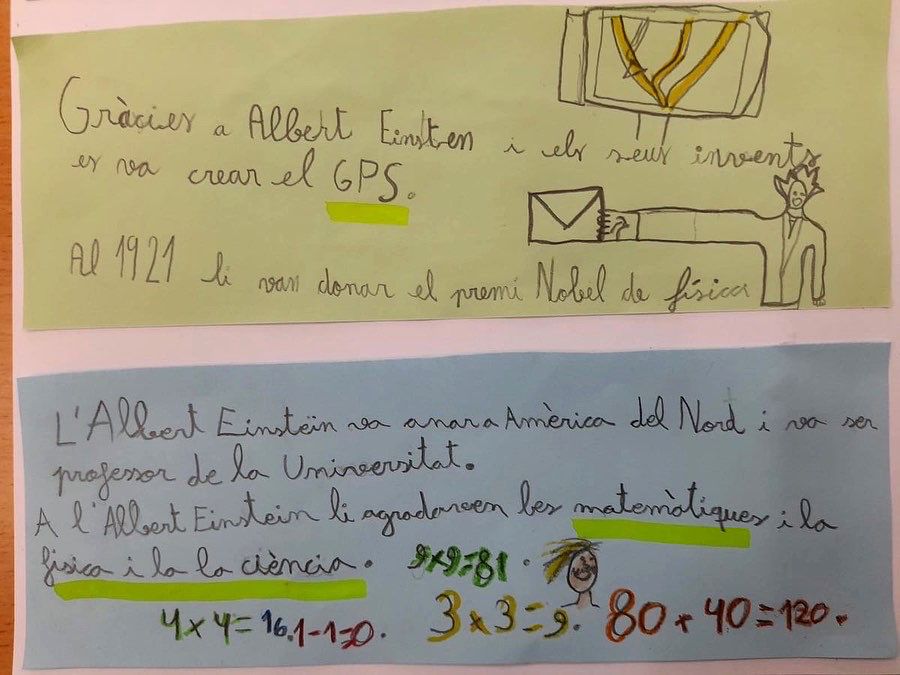 Gràcies a Albert Einsten i els seus invents
es va crear el GPS.
Al 1921 li van donar el premi Nobel de física
L'Albert Einsteïn va anar a Amèrica del Nord i va ser
professor de la Universitat.
A l'Albert Einstein li agradaven les matemàtiques i la
física i la la ciència. 9x9=81.
4x4=16. 1-1=0. 3x3=9. 80+40=120.